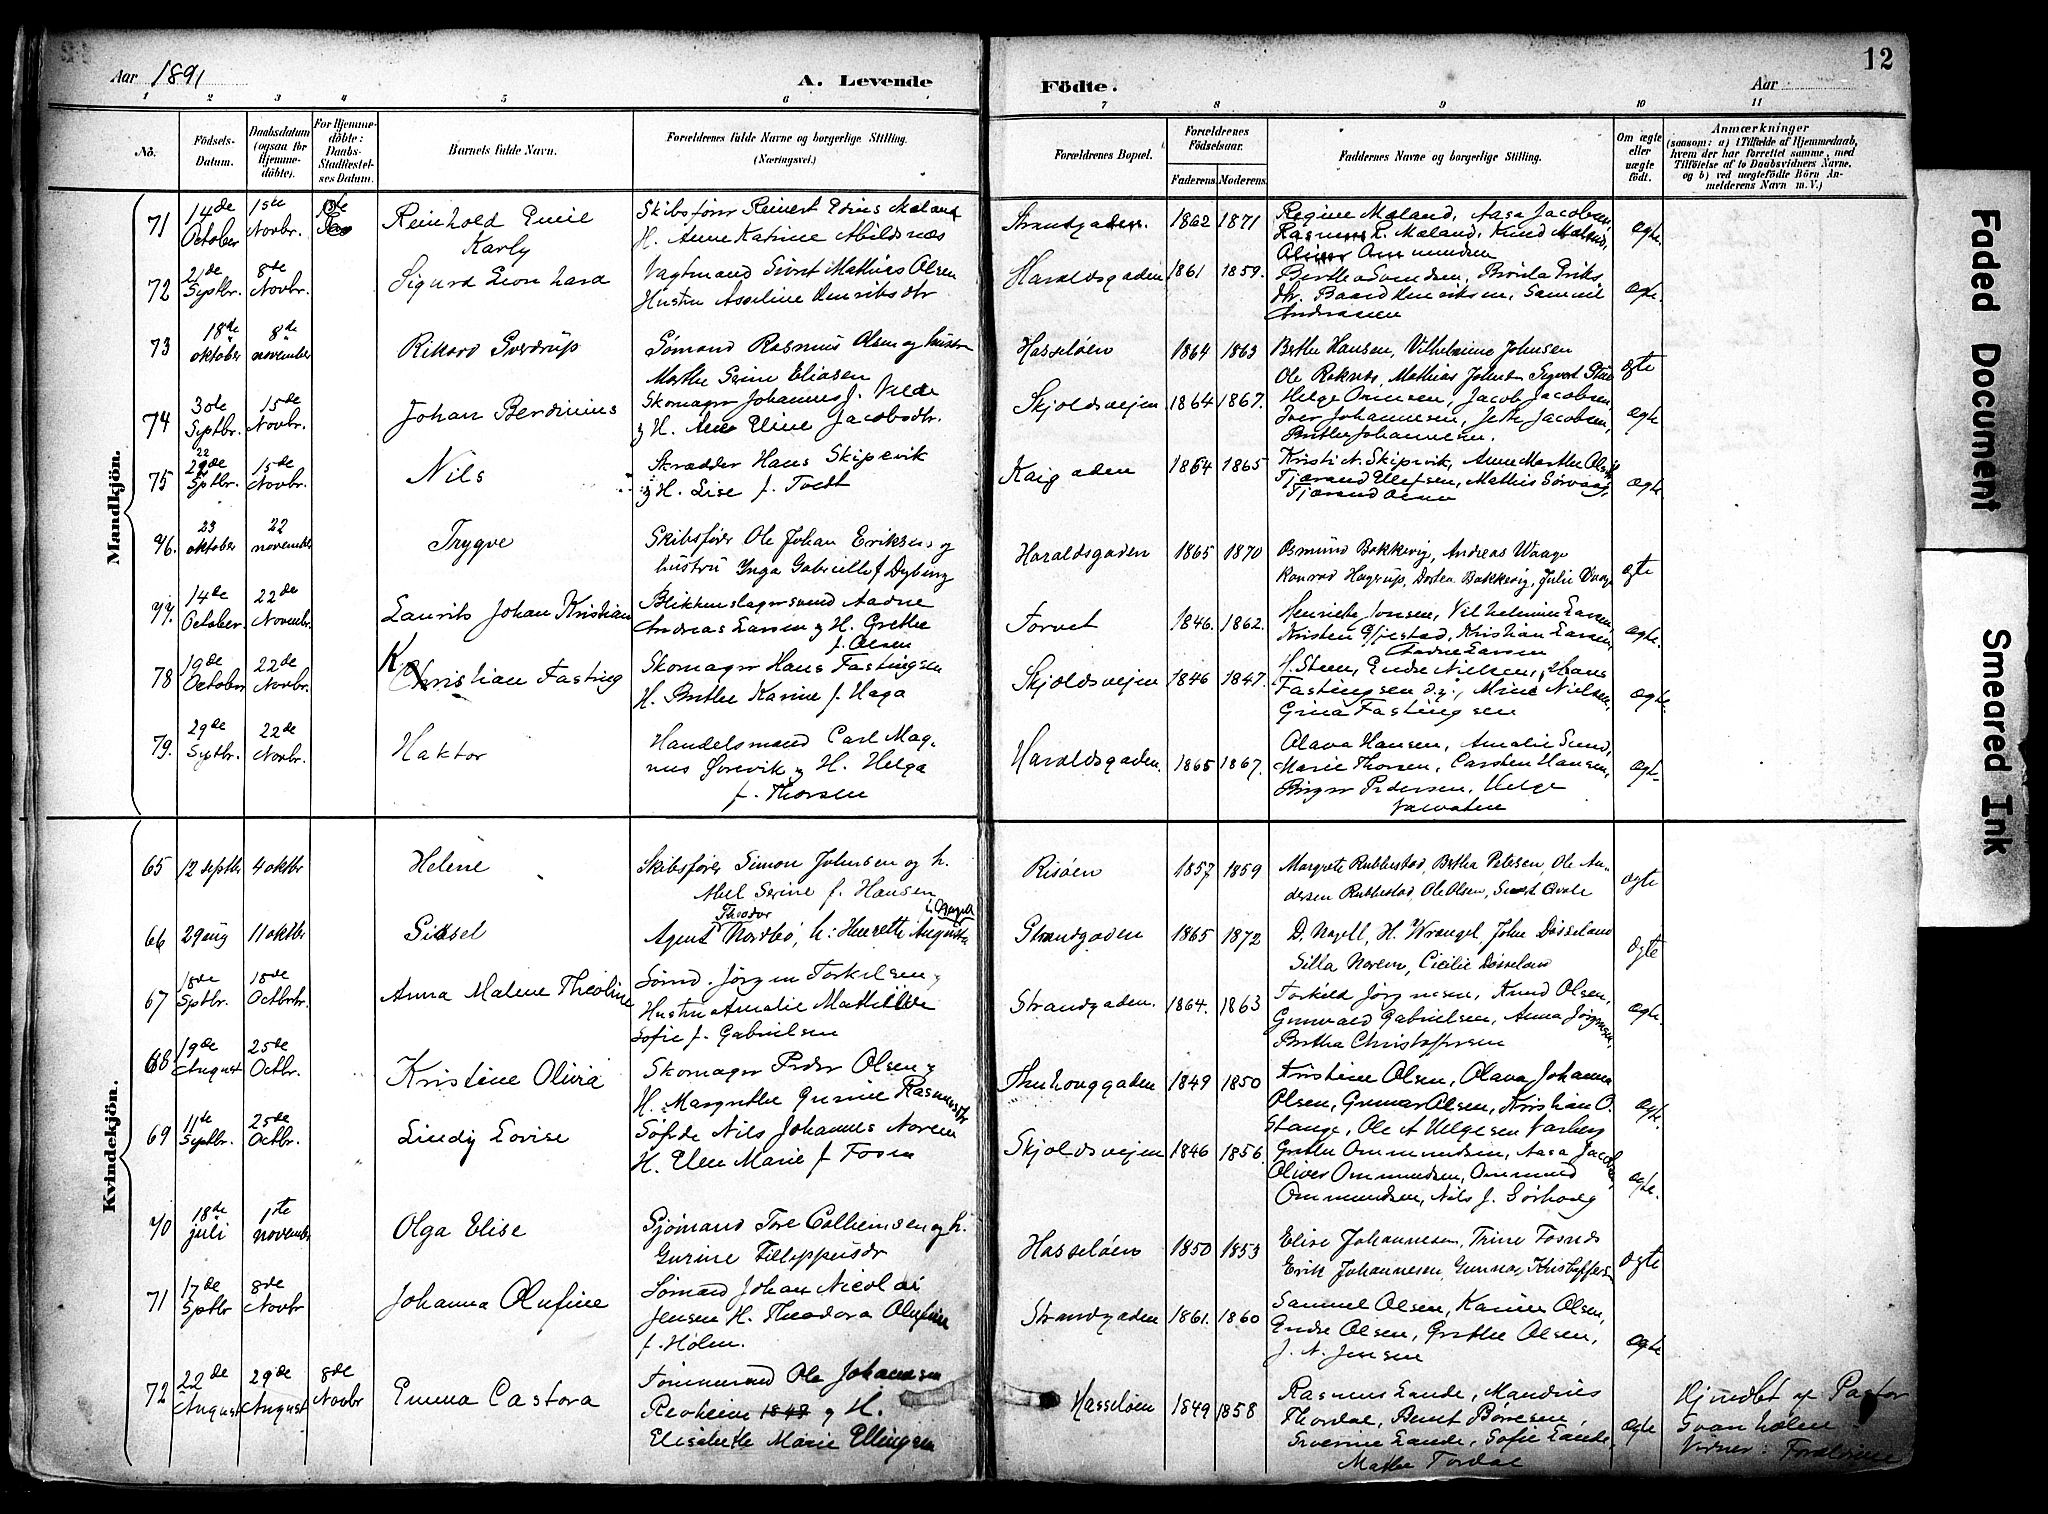 Aar 1891
A. Levende
Födte.
Aar
12
1 2 3 4 5 6 7 8 9 10 11
No.
Födsels-Datum.
Daabsdatum (ogsaa for Hjemme-döbte).
For Hjemme-döbte: Daabs-Stadfæstel-ses Datum.
Barnets fulde Navn.
Forældrenes fulde Navne og borgerlige Stilling. (Næringsvei.)
Forældrenes Bopæl.
Forældrenes Födselsaar.
Faderens. Moderens.
Faddernes Navne og borgerlige Stilling.
Om ægte eller uægte födt.
Anmærkninger
(saasom: a) i Tilfælde af Hjemmedaab, hvem der har forrettet samme, med Tilföielse af to Daabsvidners Navne. og b) ved uægtefödte Börn An-melderens Navn m. V.)
Mandkjön.
71 14de October 15te Novbr. Reinhold Emil Karly
Skibsfører Reinert Edius Maland
H. Anne Katrine Abildsnæs
Strandgaden. 1862 1871
Regine Maland, Aasa Jacobsen,
Rasmus R. Maland, Knud Maland,
Ommundsen
ægte.
72 21de Septbr. 8de Novbr. Sigurd Leonhard
Vagtmand Sivert Mathias Olsen
Hustru Asseline Henriksdtr
Haraldsgaden 1861 1859.
Berthe Svendsen, Brita Eriks
dtr. Baard Henriksen, Samuel
Andreasen
ægte.
73 18de oktober 8de november Rikard Sverdrup
Sømand Rasmus Olsen og hustru
Marthe Serine Eliasen
Hasseløen 1864 1863
Berthe Hansen, Vilhelmine Johnsen
Ole Røknes, Mathias Johnsen Sigvart
ægte
74 30te Septbr. 15de Novbr. Johan Berdinius
Skomager Johannes J. Velde
og H. Ane Eline Jacobsdtr.
Skjoldsveien 1864 1867.
Helge Omensen, Jacob Jacobsen,
Iver Johannesen, Jethe Jacobsen,
Brithe Johannesen.
ægte
75 22 29de Septbr. 15de Novbr. Nils
Skrædder Hans Skipevik
og H. Lise f. Tvedt
Kaigaden 1864 1865
Kristi N. Skipevik, Anne Marthe Olsen,
Tjærand Ellefsen, Mathis Sørvaag,
Tjærand
ægte
76. 23 oktober 22 november Trygve
Skibsfører Ole Johan Eriksen og
hustru Ynga Gabrielle f Dyberg
Haraldsgaden 1865 1870
Osmund Bakkevig, Andreas Waage
Konrad Hagrup, Dorthea Bakkevig, Julie Waage
ægte
77. 14de October 22de Novembr. Laurits Johan Kristian
Blikkenslagersvend Aadne
Andreas Larsen og H. Grethe
f. Olsen
Torvet 1846. 1862.
Henriette Jonsen, Vilhelmine Larsen,
Kristen Gjestad, Kristian Larsen,
Aadne Larsen
ægte.
78 19de October 22de Novbr. K Christian Fasting
Skomager Hans Fastingsen
H. Brithe Karine f. Haga
Skjoldsveien 1846 1847.
H. Steen, Endre Nielsen, Hans
Fastingsen d.y., Mine Nielsen,
Grina Fastingsen
ægte.
79. 29de Septbr. 22de Novbr. Haktor
Handelsmand Carl Mag-
nus Sørevik og H. Helga
f. Thorsen
Haraldsgaden. 1865 1867.
Olava Hansen, Amalie Sund,
Marie Thorsen, Carsten Hansen,
Birger Pedersen, Helge
Valvatne
ægte
Kvindekjön.
65 12 septbr 4 oktbr Helene
Skibsfører Simon Johnsen og h.
Abel Serine f. Hansen
Risøen 1857 1859
Margrete Rubbestad, Bertha Petersen, Ole An-
dersen Rubbestad, Ole Olsen, Sivert Qvale
ægte
66 29 aug 11 oktbr Sidsel
Agent Theodor Nordbø, h: Henrette Augusta f. Nagell
Strandgaden 1865 1872
D. Nagell, H. Wrangel, John Døsseland
Silla Noreen, Cicilie Døsseland
ægte
67 18de Septbr. 18de Octbrbr. Anna Malene Theoline
Sømd. Jørgen Torkelsen og
Hustru Amalie Mathilde
Sofie f. Gabrielsen
Strandgaden. 1864. 1863
Torkild Jørgensen, Knud Olsen,
Gunvald Gabrielsen, Anna Jørgensen,
Bertha Christoffersen
ægte.
68 19de August 25de Octbr. Kristine Olivia
Skomager Peder Olsen og
H. Margrethe Gurine Rasmusdtr
Thuhouggaden 1849 1850
Kristine Olsen, Olava Johanna
Olsen, Gunnar Olsen, Kristian O.
Stange, Ole A Helgesen Varberg
ægte.
69 11te Septbr. 25de Octbr. Lindy Lovise
Søfde Nils Johannes Noreen
H. Elen Marie f Fosen
Skjoldsveien 1846 1856.
Grethe Ommundsen, Aasa Jacobsen,
Oliver Ommundsen, Ommund
Ommundsen, Nils J. Sørhoug
ægte.
70 18de juli 1ste novembr Olga Elise
Sjømand Tore Colbeinsen og h.
Gurine Filleppusdr
Hasseløen 1850 1853
Elise Johannesen, Trine Fosnes
Erik Johannesen, Gunnar Kristoffersen
ægte
71 17de Septbr 8de Novbr Johanna Olufine
Sømand Johan Nicolai
Jensen H. Theodora Olufine
f. Holm.
Strandgaden 1861. 1860
Samuel Olsen, Karine Olsen,
Endre Olsen, Grethe Olsen,
J. N. Jensen
ægte
72 22de August 29de August 8de Novbr Emma Castora
Tømmermd Ole Johannesen
Revheim 1848 og H.
Elisabeth Marie Ellingsen
Hasseløen 1849 1858
Rasmus Lande, Mandius
Thordal, Bent Børresen,
Severine Lande, Sofie Lande,
Mathe Tordal
ægte
Hjmdbt af Pastor
Svanholm
Vidner: Forældrene
Faded Document
Smeared Ink